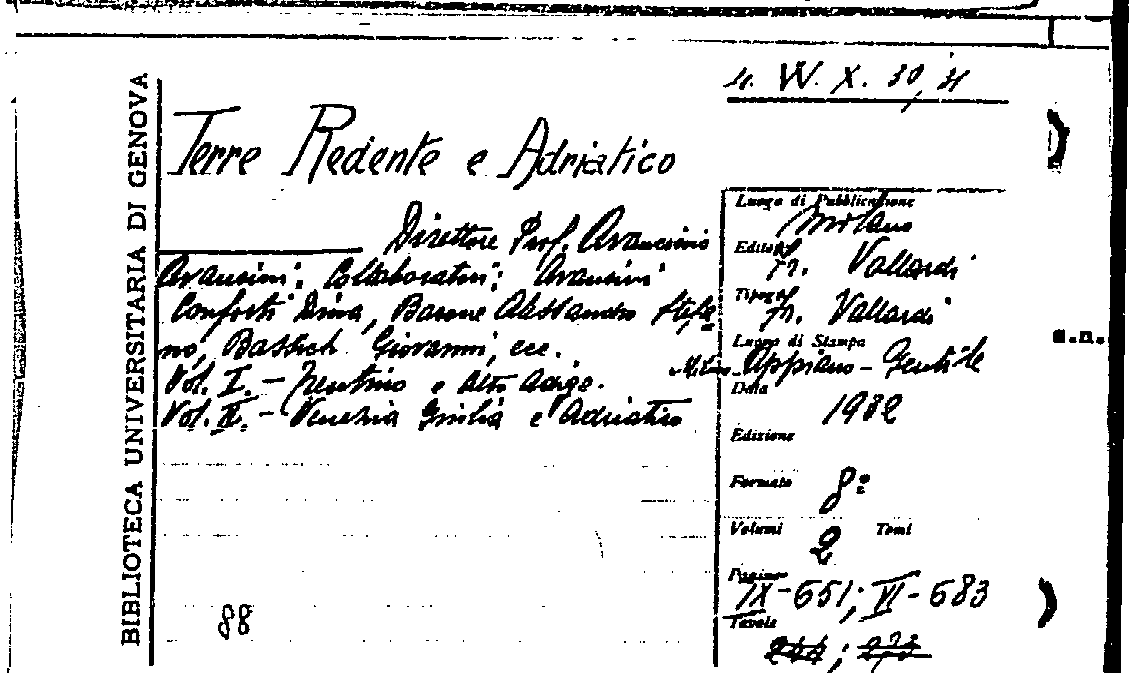 BIBLIOTECA UNIVERSITARIA DI GENOVA
4. W. X. 30, 31
Terre Redente e Adriatico
Direttore Prof. Avancinio
Avancini: Collaboratori: Avancini
Conforti Dina, Barone Alessandro Stefa
no, Bassich Giovanni, ecc.
Vol. I. - Trentino e Alto Adige.
Vol. II. - Venezia Giulia e Adriatico
88
Luogo di Pubblicazione
Milano
Editore
Fr. Vallardi
Tipogr.
Fr. Vallardi
Luogo di Stampa
Appiano - Gentile
Data
1932
Edizione
Formato 8°
Volumi 2 Tomi
Pagine
IX-651; VI-683
Tavole
244; 273